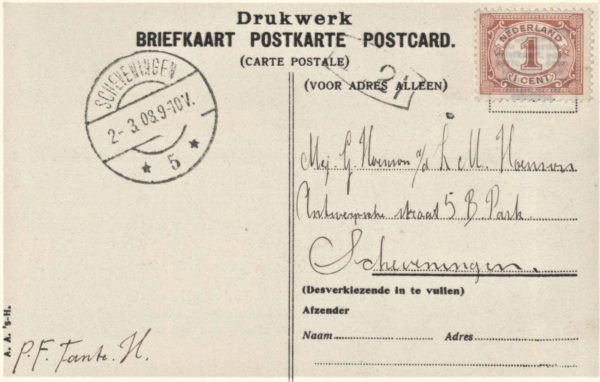 Drukwerk
BRIEFKAART POSTKARTE POSTCARD.
(CARTE POSTALE)
(VOOR ADRES ALLEEN)
NEDERLAND
1
1 CENT
SCHEVENINGEN
2-3.08.9-10V.
5
21
Mej. G. Hoenson L. M. Hoenson
Antwerpsche straat 5 B. Park.
Scheveningen.
(Desverkiezende in te vullen)
Afzender
Naam Adres
A. A. 's-H.
P.F. Tante. H.